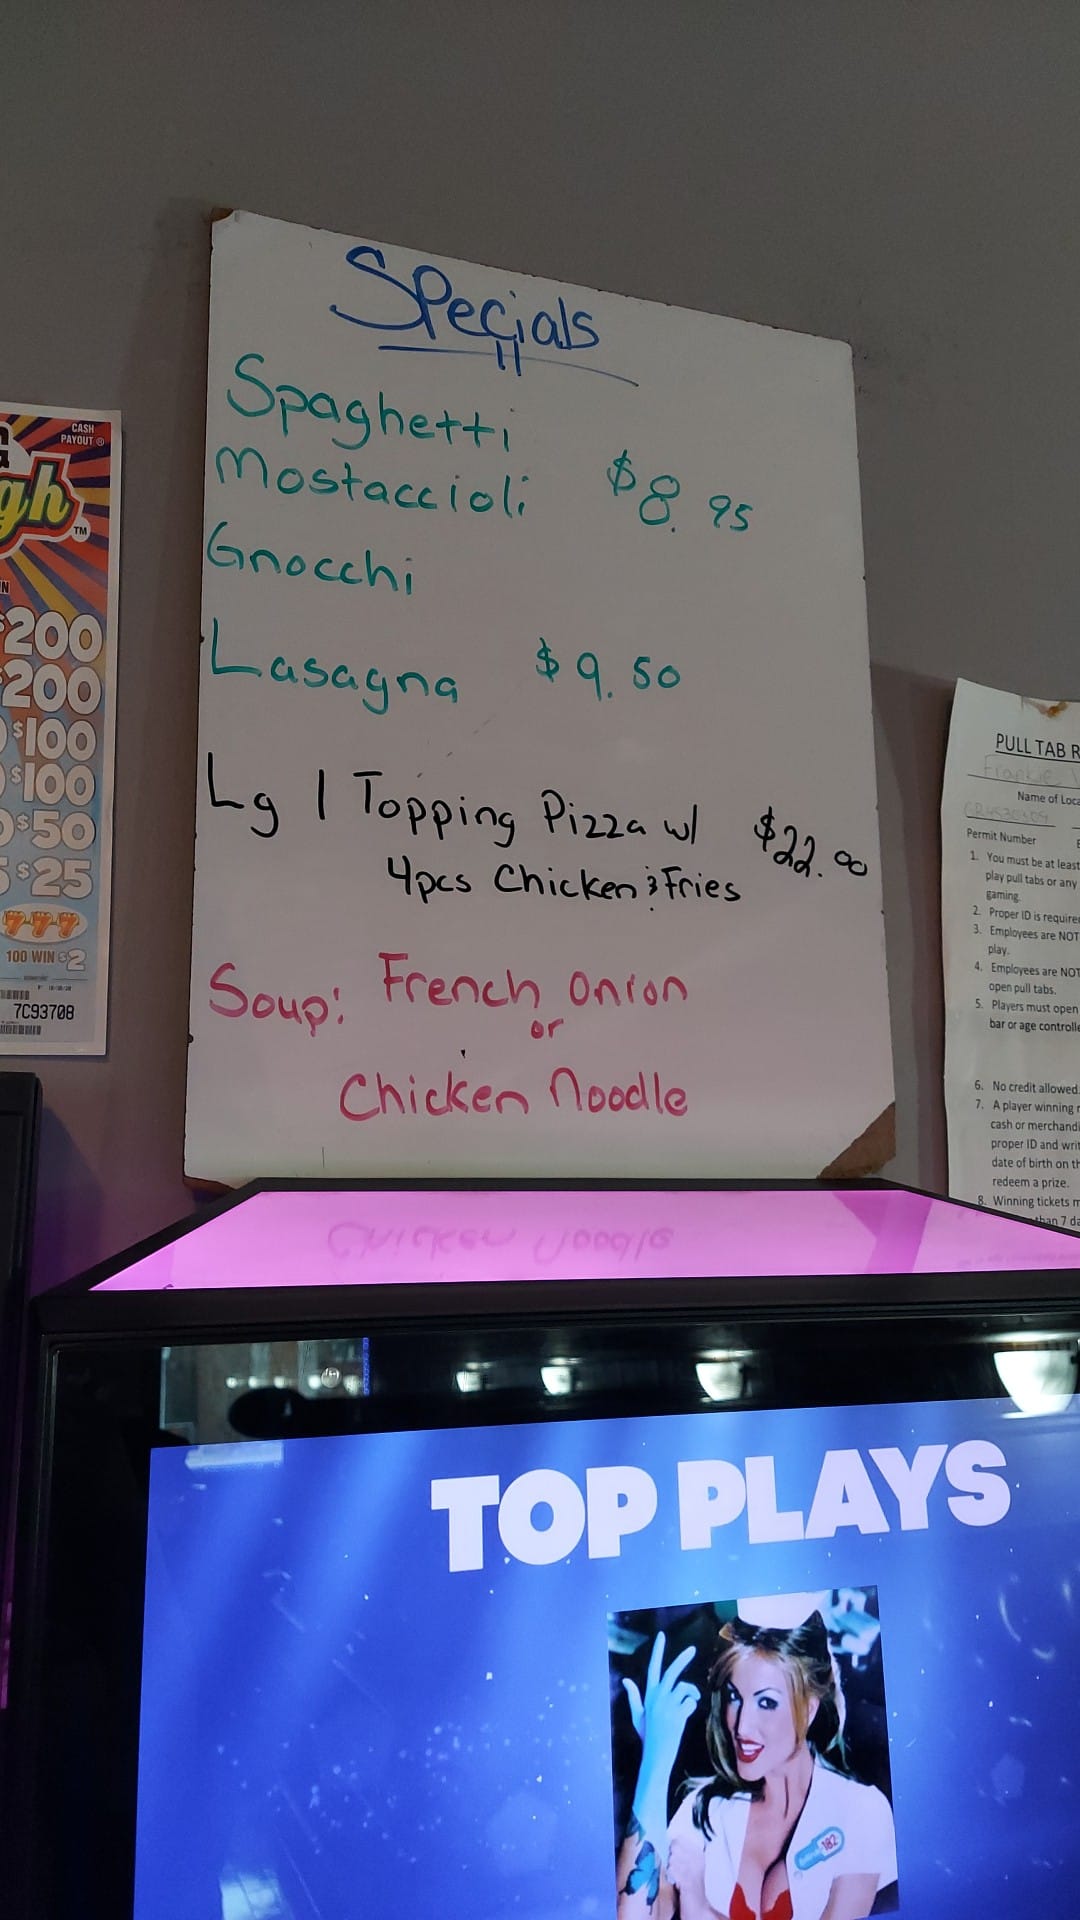 Specials
Spaghetti
Mostaccioli $8.95
Gnocchi
Lasagna $9.50
Lg 1 Topping Pizza w/ $22.00
4pcs Chicken & Fries
Soup: French Onion
or
Chicken Noodle
CASH
PAYOUT ®
gh
TM
$200
$200
$100
$100
$50
$25
777
100 WIN $2
7C93708
PULL TAB R
Frankie
Name of Loca
Permit Number
1. You must be at least
play pull tabs or any
gaming.
2. Proper ID is require
3. Employees are NOT
play.
4. Employees are NOT
open pull tabs.
5. Players must open
bar or age controlle
6. No credit allowed.
7. A player winning
cash or merchandi
proper ID and writ
date of birth on th
redeem a prize.
8. Winning tickets m
than 7 da
TOP PLAYS
blink 182